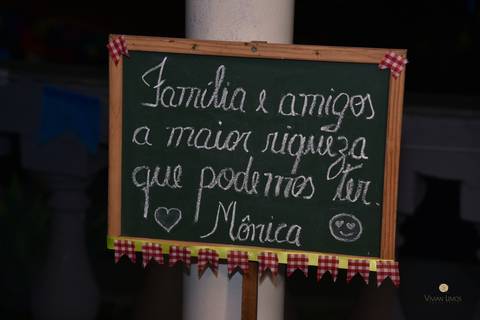 Família e amigos
a maior riqueza
que podemos ter.
Mônica
VIVIAN LEMOS